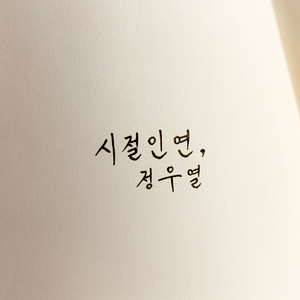 시절인연,
정우열